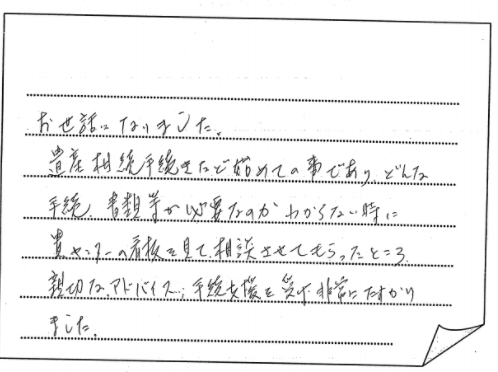 お世話になりました。
遺産相続手続きなど始めての事であり、どんな
手続、書類等が必要なのかわからない時に
貴センターの看板を見て、相談させてもらったところ、
親切な、アドバイス、手続支援を受け、非常にたすかり
ました。